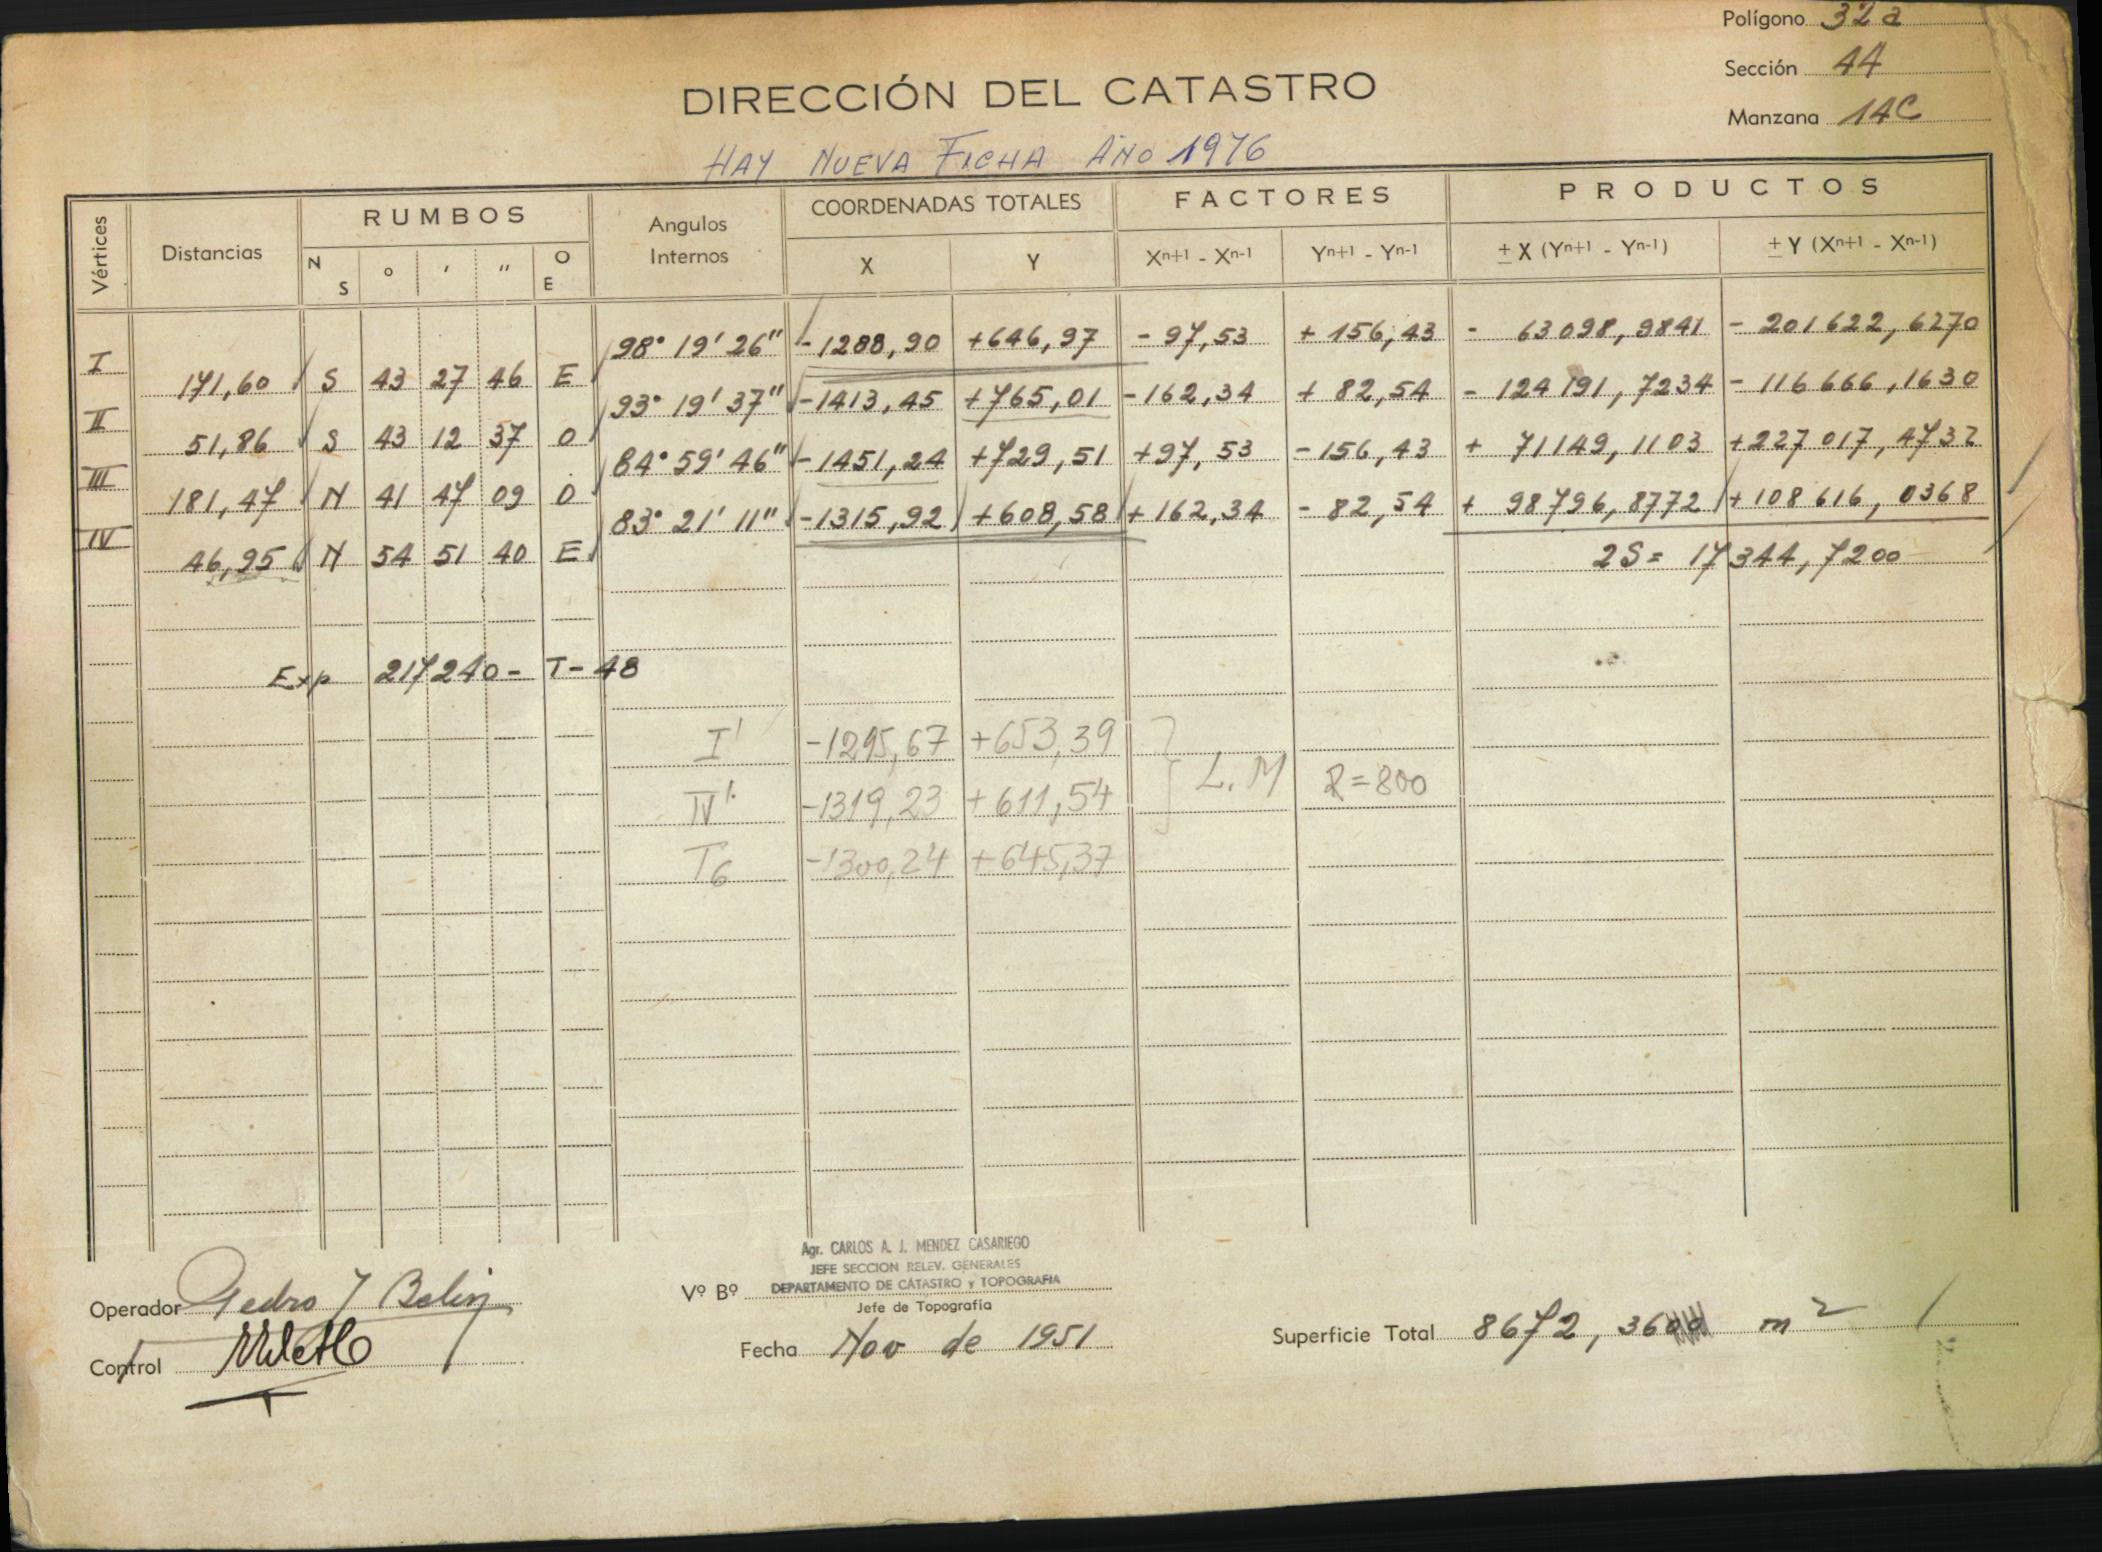 Polígono 32a
Sección 44
Manzana 14C
DIRECCIÓN DEL CATASTRO
HAY NUEVA FICHA AÑO 1976
Vértices Distancias RUMBOS Angulos Internos COORDENADAS TOTALES FACTORES PRODUCTOS
N S ° ' " O E X Y Xn+1 - Xn-1 Yn+1 - Yn-1 ± X (Yn+1 - Yn-1) ± Y (Xn+1 - Xn-1)
98° 19' 26" -1288,90 +646,97 - 97,53 + 156,43 - 63098,9841 - 201622,6270
I 171,60 S 43 27 46 E
93° 19' 37" -1413,45 +765,01 -162,34 + 82,54 - 124191,7234 - 116666,1630
II 51,86 S 43 12 37 O
84° 59' 46" -1451,24 +729,51 +97,53 -156,43 + 71149,1103 +227017,4732
III 181,47 N 41 47 09 O
83° 21' 11" -1315,92 +608,58 +162,34 - 82,54 + 98796,8772 +108616,0368
IV 46,95 N 54 51 40 E
2S= 17344,7200
Exp 217240- T-48
I' -1295,67 +653,39
L.M R=800
IV' -1319,23 +611,54
T6 -1300,24 +645,37
Agr. CARLOS A. J. MENDEZ CASARIEGO
JEFE SECCION RELEV. GENERALES
DEPARTAMENTO DE CATASTRO y TOPOGRAFIA
Vº Bº
Jefe de Topografía
Operador Pedro
Control
Fecha Nov de 1951
Superficie Total 8672,36 m2